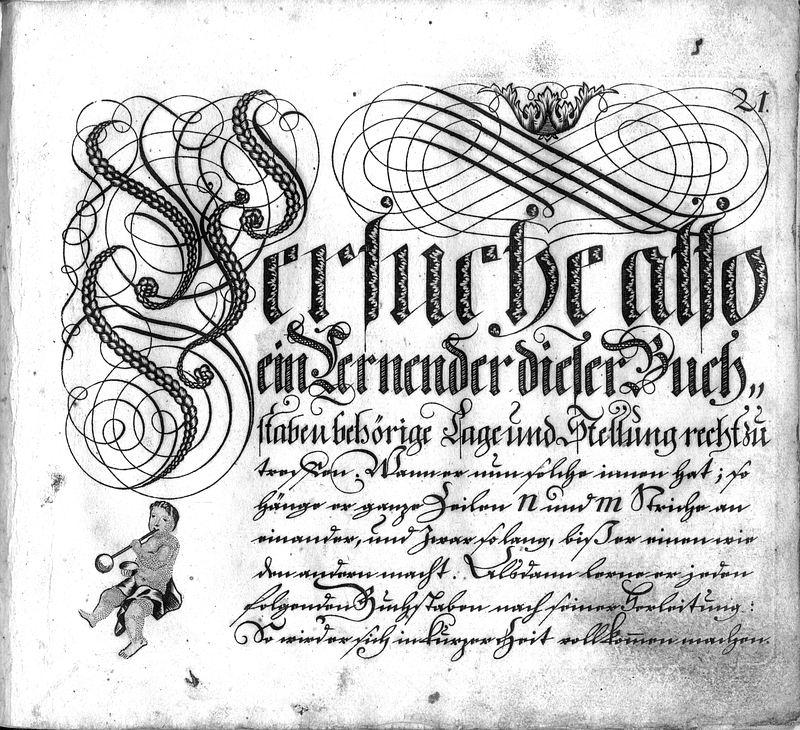 21.
Versuche also
ein Lernender dieser Buch„
staben behörige Lage und Stellung recht zu
treffen. Wann er nun solche innen hat; so
hänge er ganze Zeilen n und m Striche an
einander, und zwar so lang, biß er einen wie
den andern macht. Alsdann lerne er jeden
folgenden Buchstaben nach seiner Herleitung:
So wird er sich in kurzer Zeit vollkom̅en machen.